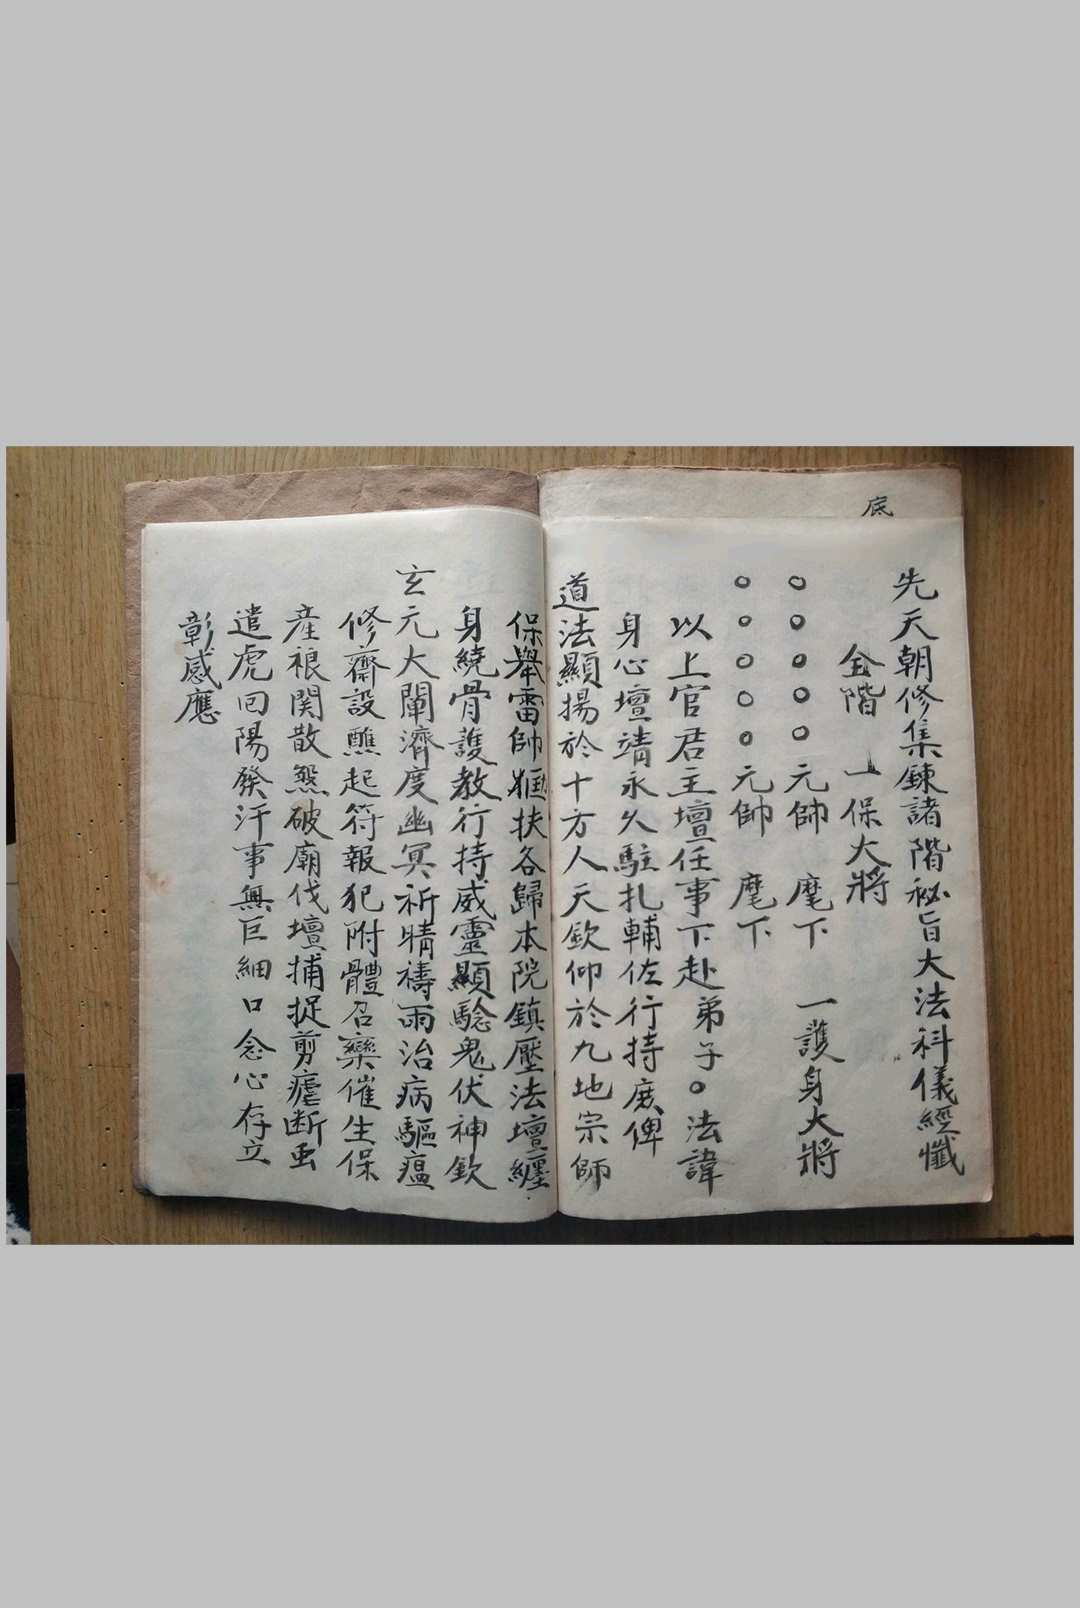 底
先天朝修集鍊諸階秘旨大法科儀經懺
金階 一保大將
○○○○○元帥 麾下 一護身大將
○○○○○元帥 麾下
以上官君主壇任事下赴弟子○法諱
身心壇靖永久駐扎輔佐行持庻俾
道法顯揚於十方人天欽仰於九地宗師
保舉雷帥 扶各歸本院鎮壓法壇纏
身繞骨護教行持威靈顯騐鬼伏神欽
玄元大闡濟度幽冥祈晴禱雨治病驅瘟
修齋設醮起符報犯附體召藥催生保
産 関散煞破廟伐壇捕捉剪瘧断䖝
遣虎回陽發汗事無巨細口念心存立
彰感應